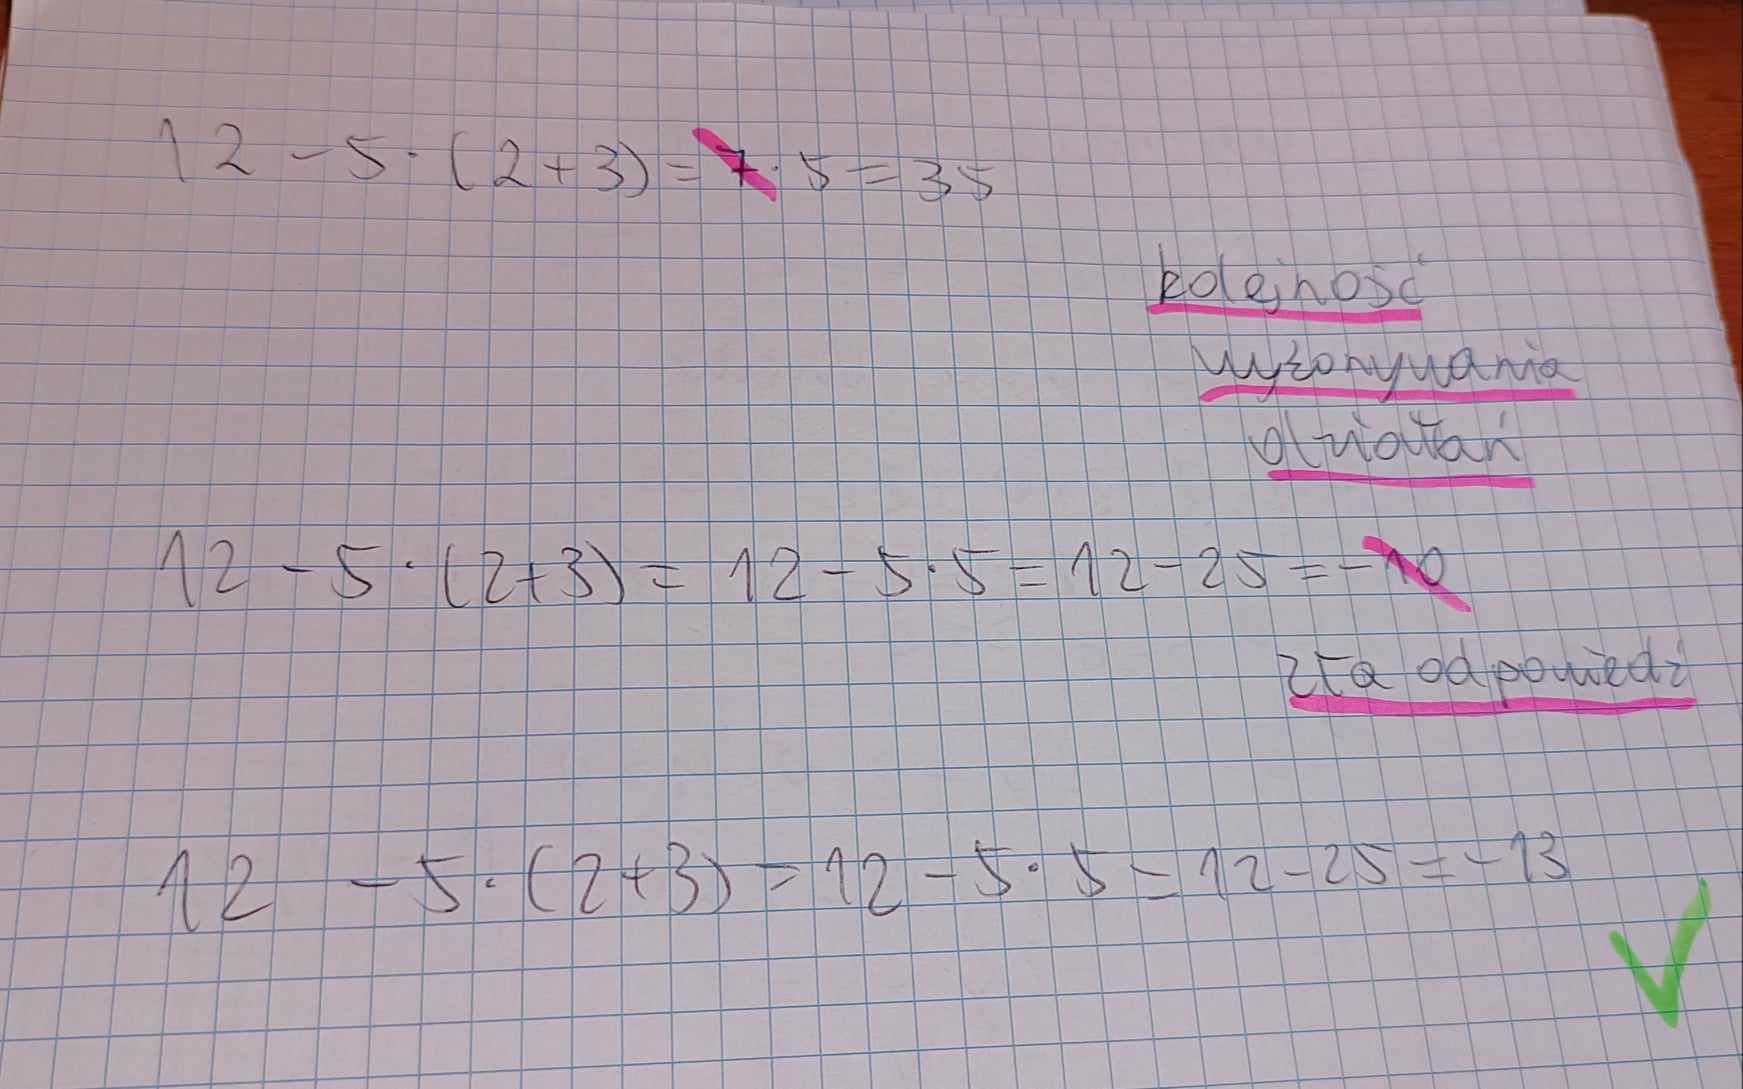 12 - 5 · (2+3) = 7 · 5 = 35
kolejność
wykonywania
działań
12 - 5 · (2+3) = 12 - 5 · 5 = 12 - 25 = -10
zła odpowiedź
12 - 5 · (2+3) = 12 - 5 · 5 = 12 - 25 = -13